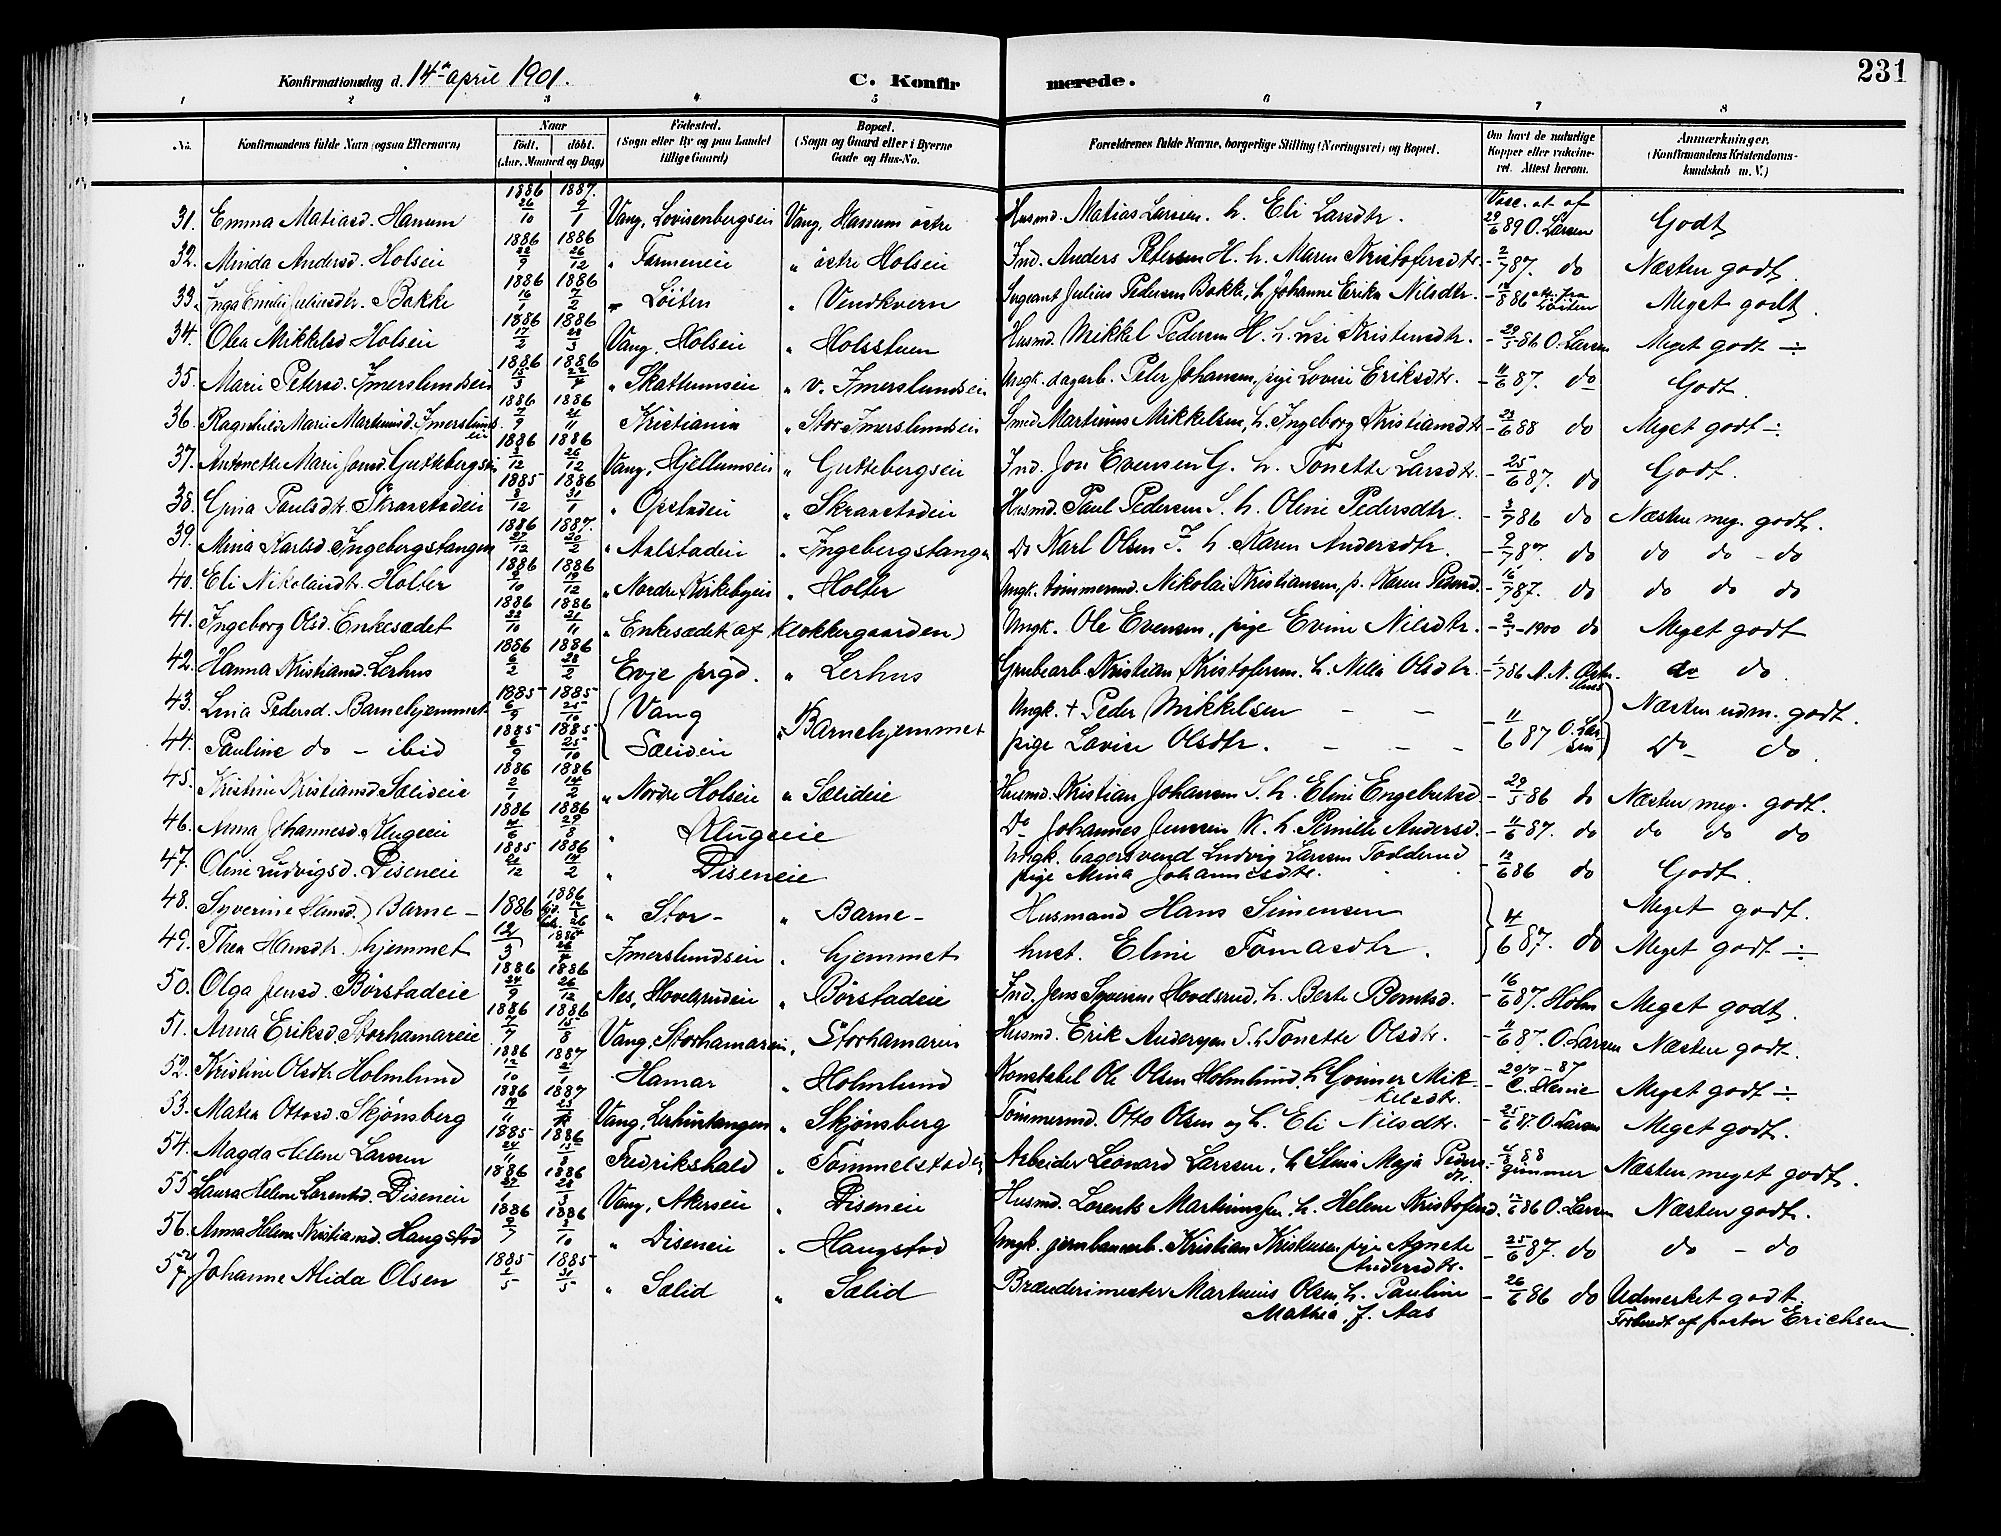 231
Konfirmationsdag d. 14de april 1901. C. Konfir merede.
1 2 3 4 5 6 7 8
No. Konfirmandens fulde Navn (ogsaa Efternavn) Naar født. døbt. (Aar, Maaned og Dag) Fødested. (Sogn eller By og paa Landet tillige Gaard) Bopæl. (Sogn og Gaard eller i Byerne Gade og Hus-No. Forældrenes fulde Navne, borgerlige Stilling (Næringsvei) og Bopæl. Om havt de naturlige Kopper eller vakcineret. Attest herom. Anmærkninger. (Konfirmandens Kristendomskundskab m. V.)
31. Emma Matiasd. Hanum 1886 26/10 1887. 9/1 Vang, Lovisenbergseie Vang, Hanum østre Husmd. Matias Larsen. h. Eli Larsdtr. Vacc. at. af 29/6 89 O. Larsen Godt
32. Minda Andersd. Holseie 1886 22/9 1886 26/12 " Farmeneie " østre Holseie Ind. Anders Petersen H. h. Maren Kristofersdtr. - 2/7 87. do Næsten godt.
33. Inga Emilie Juliusdtr. Bakke 1886 16/1 1886 7/2 " Løiten " Vendkvern Sergeant Julius Pedersen Bakke, h. Johanne Erika Nilsdtr. 86 att. fra Løiten Meget godt.
34. Olea Mikkelsd Holseie 1886 17/2 1886 28/3 Vang. Holseie " Holsstuen Husmd. Mikkel Pedersen H. h. Kristensdtr. - 29/5 86 O. Larsen Meget godt ÷
35. Marie Petersd. Imerslundseie 1886 15/3 1886 22/4 " Skattumseie " v. Imerslundseie Ungk. dagarb. Peter Johansen, pige Lovise Eriksdtr. - 11/6 87. do Godt.
36. Ragnhild Marie Martinusd. Imerslundseie 1886 7/9 1886 21/11 " Kristiania " Stor Imerslundseie Smed Martinus Mikkelsen, h. Ingeborg Kristiansdtr - 23/6 88 do Meget godt ÷
37. Antonette Marie Jonsd. Guttebergseie 1886 3/12 1886 26/12 Vang, Hjellumseie " Guttebergseie Ind. Jon Evensen G. h. Tonette Larsdtr. - 25/6 87. do Godt.
38. Gina Paulsdtr. Skrarstadeie 1885 8/12 1886 31/1 " Opstadeie " Skraastadeie Husmd. Paul Pedersen S. h. Oline Pedersdtr. - 3/7 86 do Næsten meg. godt.
39. Mina Karlsd. Ingebergstangen 1886 27/12 1887. 20/2 " Aalstadeie " Ingebergstangen Do Karl Olsen I. h. Karen Andersdtr. - 9/7 87. do do do - do
40. Eli Nikolaidtr. Holter 1886 9/10 1886 19/12 " Nordre Kirkebyeie " Holter Ungk. tømmermd. Nikolai Kristiansen, p. Karen Pedersd. - 16/7 87. do do do do
41. Ingeborg Olsd. Enkesædet 1886 22/10 1886 21/11 " Enkesædet af Klokkergaarden) Ungk. Ole Evensen, pige Evine Nilsdtr. - 2/3 - 1900 do Meget godt
42. Hanna Kristiansd. Lerhus 1886 6/2 1886 28/2 Evje prgd. " Lerhus Grubearb. Kristian Kristofersen. h. Nilia Olsdtr. - 1/7 86 A. N. do do.
43. Lina Pedersd. Barnehjemmet 1885 6/9 1885 25/10 Vang " Barnehjemmet Ungk. + Peder Mikkelsen - - - 11/6 87 O. Larsen Næsten udm. godt.
44. Pauline do - ibid 1885 6/9 1885 25/10 Sælideie pige Lovise Olsdtr. - - - Do do.
45. Kristine Kristiansd Sælideie 1886 2/1 1886 14/2 " Nordre Holseie " Sælideie Husmd. Kristian Johansen S. h. Eline Engebretsd - 29/5 86 do Næsten meg. godt.
46. Anna Johannesd. Klugeeie 1886 4/6 1886 29/8 " Klugeeie Do Johannes Jenssen K. h. Pernille Andersd. - 11/6 87. do do do do
47. Oline Ludvigsd. Diseneie 1885 21/12 1886 14/2 " Diseneie Ungk. bagersvend Ludvig Larsen Todderud pige Mina Johannesdtr. - 12/6 86 do Godt.
48. Syverine Hansd. ) Barne- 1886 12/3 1886 " Stor- " Barne- Husmand Hans Simensen 11/6 87. do Meget godt.
49. Thea Hansdtr. ) hjemmet 1886 26/4 Imerslundseie " hjemmet hust. Eline Tomasdtr. Meget godt ÷
50. Olga Jensd. Børstadeie 1886 24/9 1886 26/12 Nes, Hovelsrudeie " Børstadeie Ind. Jens Syversen Hovelsrud, h. Berte Berntsd. - 16/6 87. Holm Meget godt.
51. Anna Eriksd. Storhamareie 1886 7/7 1886 15/8 Vang, Storhamareie " Storhamareie Husmd. Erik Andersen S. h Tonette Olsdtr. - 11/6 87. O. Larsen Næsten godt.
52. Kristine Olsdtr Holmlund 1886 12/10 1887 2/1 Hamar " Holmlund Konstabel Ole Olsen Holmlund, h Gunner Mikkelsdtr. 20/7 - 87 - C. Heine Meget godt ÷
53. Matea Ottosd. Skjønsberg 1886 19/11 1887 Vang, Lerhustangen " Skjønsberg Tømmermd. Otto Olsen og h. Eli Nilsdtr. - 25/6 87. O. Larsen Meget godt.
54. Magda Helene Larsen 1885 24/11 1886 Fredrikshald " Tommelstadeie Arbeider Leonard Larssen, h Stina Maja Pedersdtr. 88 Gimmer Næsten meget godt.
55 Laura Helene Lorentsd. Diseneie 1886 1886 28/3 Vang, Akerseie " Diseneie Husmd. Lorents Martinussen. h. Helene Kristofersd. - 12/6 86 O. Larsen Næsten godt.
56. Anna Helene Kristiansd. Haugstad 1886 9/7 1886 3/10 " Diseneie " Haugstad Ungk. jernbanearb. Kristian Kristensen pige Agnete Andersdtr. - 25/6 87. do do - do
57 Johanne Alida Olsen 1885 2/5 1885 31/5 " Sælid " Sælid Brænderimester Martinius Olsen h. Pauline Mathea f. Aas - 26/6 86 do Udmerket godt. Forberedt af pastor Erichsen.